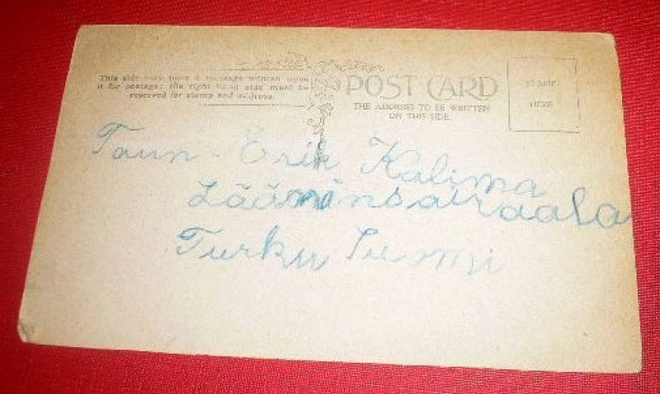 This side may have a message written upon
it for postage: the right hand side must be
reserved for stamp and address.
POST CARD
THE ADDRESS TO BE WRITTEN
ON THIS SIDE.
STAMP
HERE
Toun Erik Kalima
Lääninsairaala
Turku Suomi